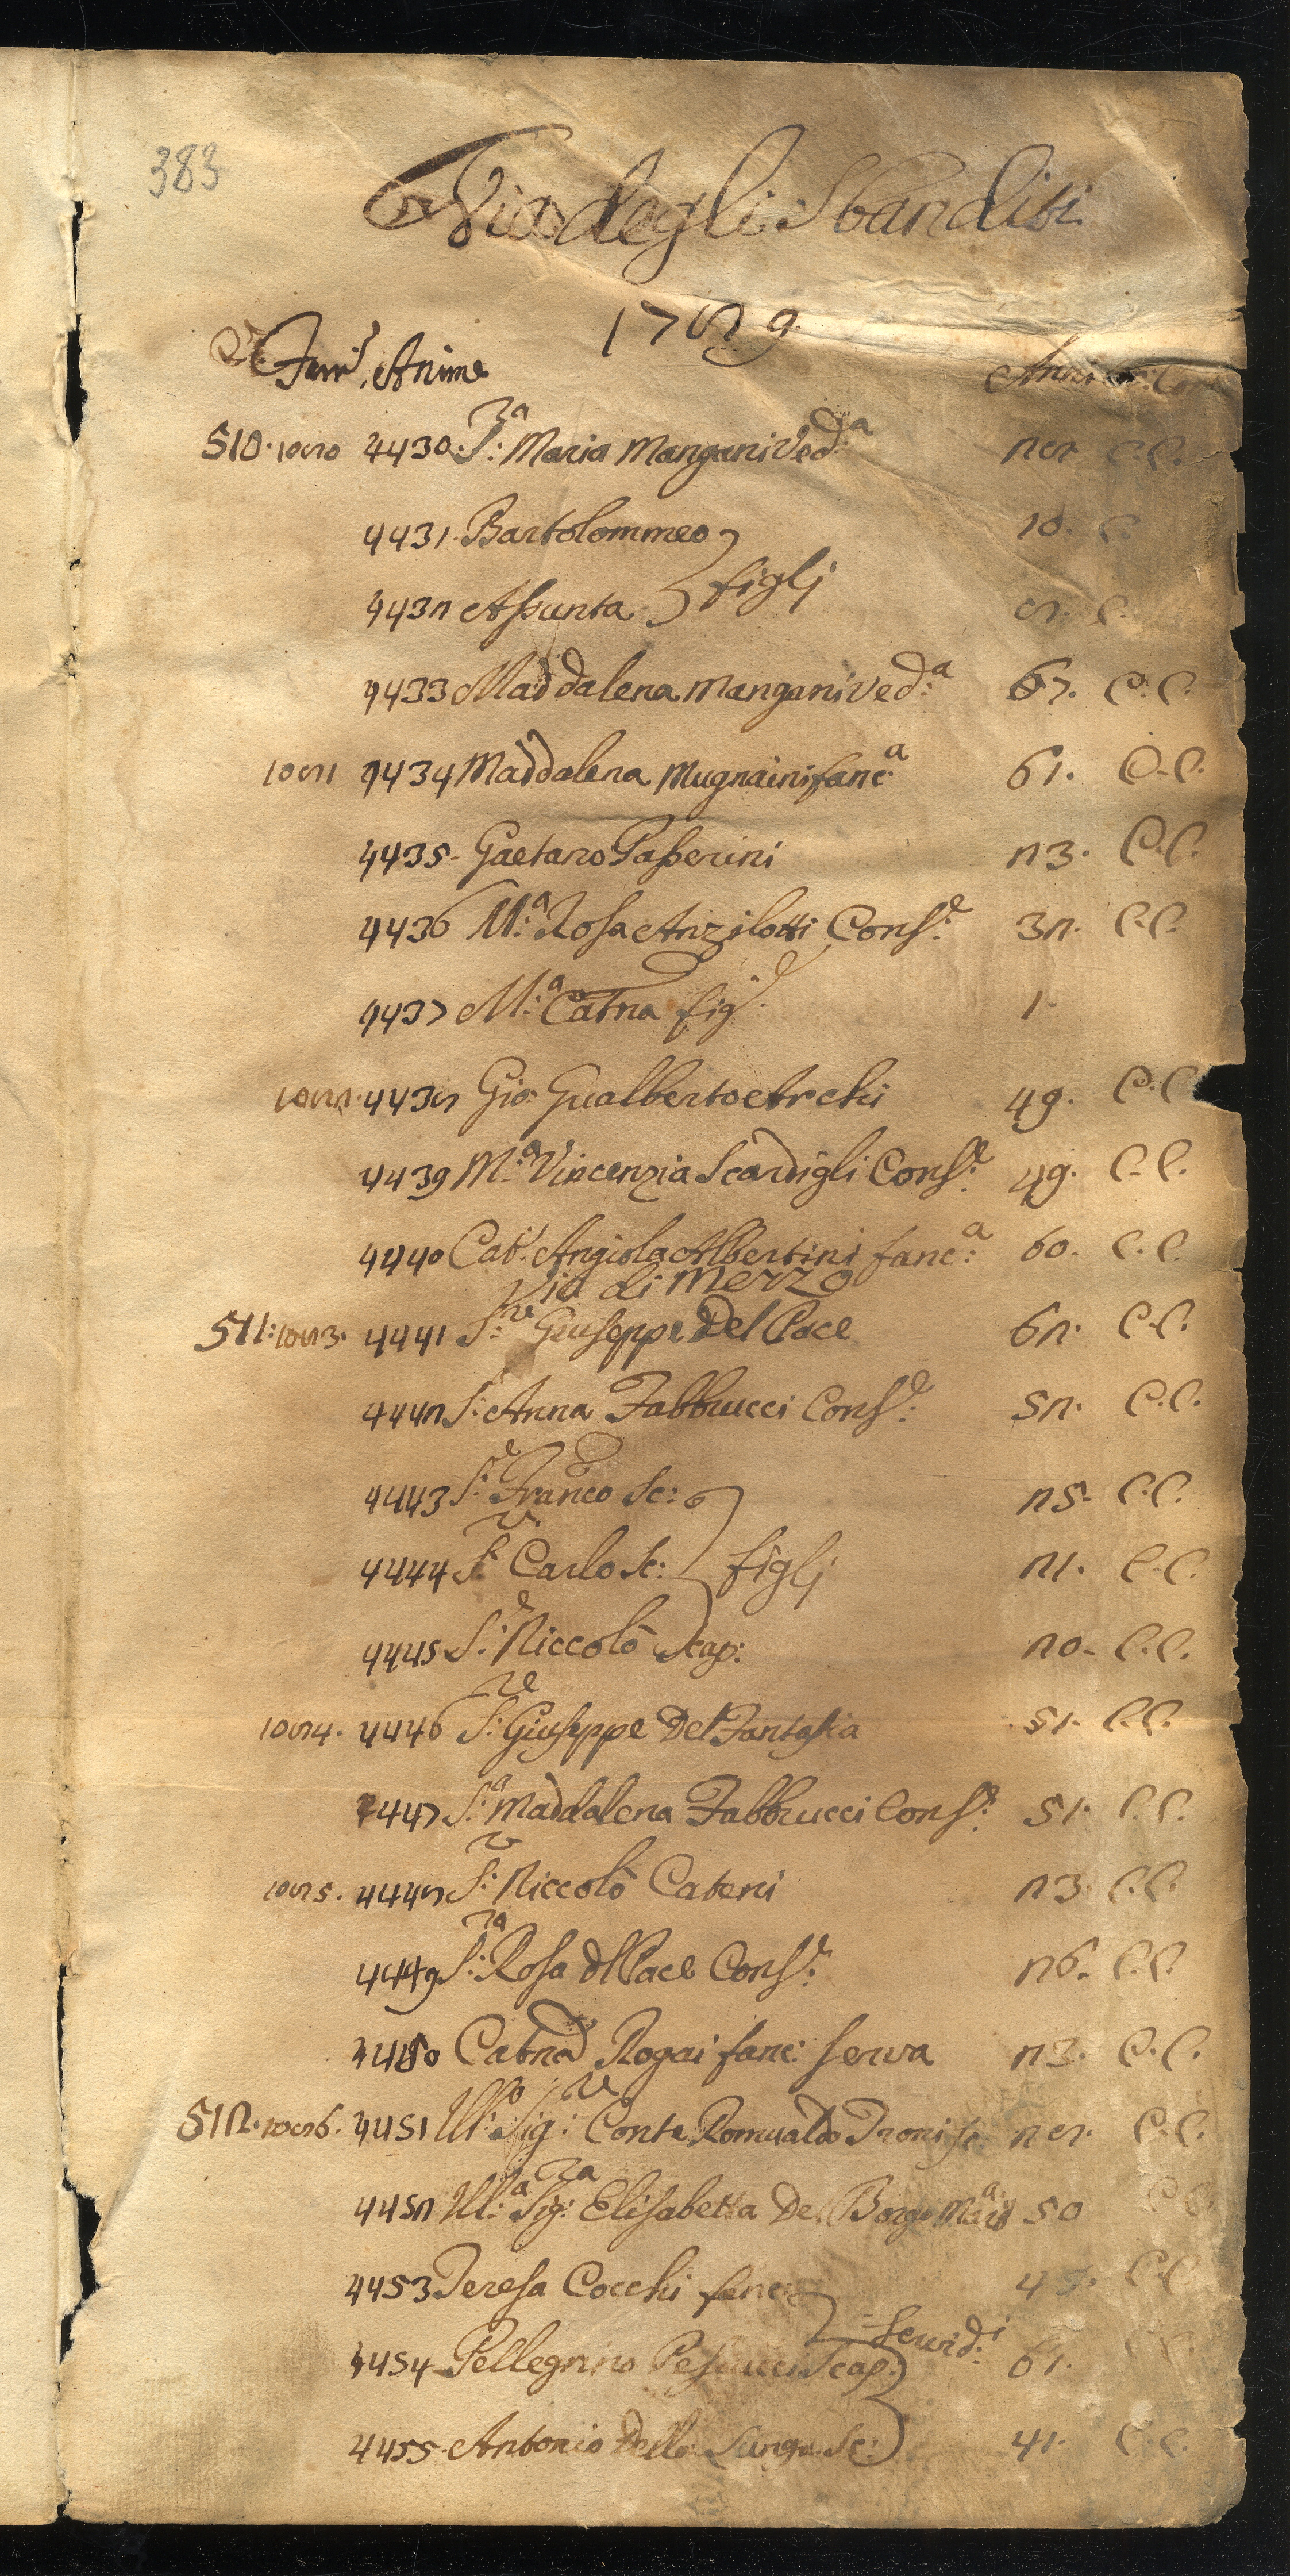 383
Via degli Sbanditi
1789
Fam.e Anime
510. 1080 4430. S.ra Maria Mangani Ved.a 28 C.C.
4431. Bartolommeo 10. C.
figlj
4432 Assunta 8. C.
4433 Maddalena Mangani Ved.a 67. C.C.
1081 4434 Maddalena Mugnaini fanc.a 61. C.C.
4435. Gaetano Passerini 23. C.C.
4436 M.a Rosa Anzilotti Cons.e 32. C.C.
4437 M.a Catna fig.a 1
1082. 4438 Gio: Gualberto Archi 49. C.C.
4439 M.a Vincenzia Scardigli Cons.e 49. C.C.
4440 Cat.a Angiola Albertini fanc.a 60. C.C.
Via di Mezzo
511: 1083. 4441 S.re Giuseppe Del Pace 62. C.C.
4442 S.a Anna Fabbrucci Cons.e 52. C.C.
4443 S.e Franco Sc: 25. C.C.
4444 S.r Carlo Sc: figlj 21. C.C.
4445 S.e Niccolò Scap: 20. C.C.
1084. 4446 S.re Giuseppe Del Fantasia 51. C.C.
4447 S.a Maddalena Fabbrucci Cons.e 51. C.C.
1085. 4448 S.r Niccolò Cateni 23. C.C.
4449 S.ra Rosa dl Pace Cons.e 26. C.C.
4450 Catna Rogai fanc: serva 23. C.C.
512. 1086. 4451 Ill.o Sig.re Conte Romualdo Troni sc: 28. C.C.
4452 Ill.a Sig.ra Elisabetta Del Borgo Mad.a 50 C.C.
4453 Teresa Cocchi fanc: C.C.
Servid.i
4454 Pellegrino Pescucci Scap. 61. C.C.
4455. Antonio Della Lunga Sc: 41. C.C.